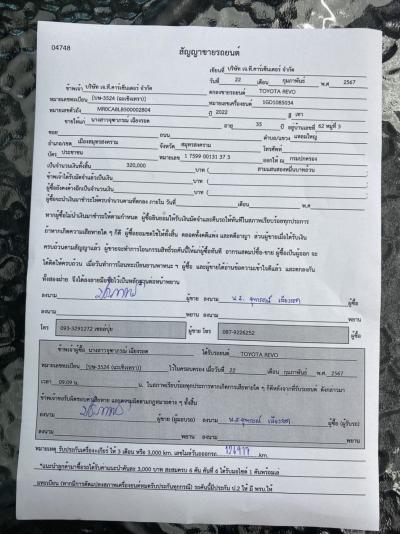 04748
สัญญาขายรถยนต์
เขียนที่ บริษัท เจ.ที.คาร์เซ็นเตอร์ จำกัด
วันที่ 22 เดือน กุมภาพันธ์ พ.ศ 2567
ข้าพเจ้า บริษัท เจ.ที.คาร์เซ็นเตอร์ จำกัด ตกลงขายรถยนต์ TOYOTA REVO
หมายเลขทะเบียน (บษ-3524 (ฉะเชิงเทรา)) หมายเลขเครื่องยนต์ 1GD1085034
หมายเลขตัวถัง MR0CA8LB500002804 ปี 2022 สี เทา
ขายให้แก่ นางสาวจุฑาภรณ์ เฉียงรอด อายุ 35 ปี อยู่บ้านเลขที่ 62 หมู่ที่ 3
ซอย ถนน ตำบล/แขวง แหลมใหญ่
อำเภอ/เขต เมืองสมุทรสงคราม จังหวัด สมุทรสงคราม โทรศัพท์
บัตร ประชาชน หมายเลข 1 7599 00131 37 3 ออกให้ ณ กรมปกครอง
เป็นจำนวนเงินทั้งสิ้น 320,000 บาท ( สามแสนสองหมื่นบาทถ้วน
ข้าพเจ้าได้รับมัดจำแล้วเป็นเงิน บาท (
ผู้ซื้อยังคงค้างอีกเป็นจำนวนเงิน บาท (
ผู้ซื้อจะนำเงินมาชำระให้ครบตามจำนวนตามที่ตกลง ภายใน วันที่ เดือน พ.ศ.
หากผู้ซื้อไม่นำเงินมาชำระให้ครบตามกำหนด ผู้ซื้อยินยอมให้ริบเงินมัดจำและคืนรถให้ทันทีในสภาพเรียบร้อยทุกประการ
ถ้าหากเกิดความเสียหายใด ๆ ก็ดี ผู้ซื้อยอมชดใช้ให้ทั้งสิ้น ตลอดทั้งคดีแพ่ง และคดีอาญา ส่วนผู้ขายเมื่อได้รับเงิน
ครบถ้วนตามสัญญาแล้ว ผู้ขายจะทำการโอนกรรมสิทธิ์รถคันนี้ให้แก่ผู้ซื้อทันที จากนายหน้าซื้อ-ขาย ผู้ซื้อเป็นผู้ออก จะ
ได้คิดให้ครบถ้วน เมื่อวันทำการโอนทะเบียนยานพาหนะ ๆ ผู้ซื้อ และผู้ขายได้อ่านข้อความเข้าใจดีแล้ว และตกลงกัน
ทั้งสองฝ่าย จึงได้ลงลายมือชื่อไว้เป็นหลักฐานต่อหน้าพยาน
ลงนาม ผู้ขาย ลงนาม น.ส. จุฑาภรณ์ เฉียงรอด ผู้ซื้อ
ลงนาม พยาน ลงนาม พยาน
โทร 093-3291272 ผู้ขาย โทร 087-9226252 ผู้ซื้อ
ข้าพเจ้าผู้ซื้อ นางสาวจุฑาภรณ์ เฉียงรอด ได้รับรถยนต์ TOYOTA REVO
หมายเลขทะเบียน (บษ-3524 (ฉะเชิงเทรา)) ไว้ในครอบครอง เมื่อวันที่ 22 เดือน กุมภาพันธ์ พ.ศ. 2567
เวลา 09.09 น. น. ในสภาพเรียบร้อยทุกประการหากเกิดการเสียหายใด ๆ ก็ดีหลังจากที่รับรถยนต์ ดังกล่าวมา
ข้าพเจ้าขอรับผิดชอบค่าเสียหาย และคดีตามกฎหมายต่าง ๆ ทั้งสิ้น
ลงนาม ผู้ขาย (ผู้มอบรถ) ลงนาม น.ส. จุฑาภรณ์ เฉียงรอด ผู้ซื้อ (ผู้รับรถ)
ลงนาม พยาน ลงนาม พยาน
หมายเหตุ รับประกันเครื่อง+เกียร์ ให้ 3 เดือน หรือ 3,000 km. เลขไมล์วันออกรถ km.
*แนะนำลูกค้ามาซื้อรถได้รับค่าแนะนำคันละ 3,000 บาท สะสมครบ 6 คัน คันที่ 6 ได้รับมอไซค์ 1 คันพร้อมเล่
มทะเบียน (หากมีการดัดแปลงสภาพเครื่องยนต์หมดรับประกันทุกกรณี) รถคันนี้มีประกัน ป.2 ให้ มี พรบ.ให้